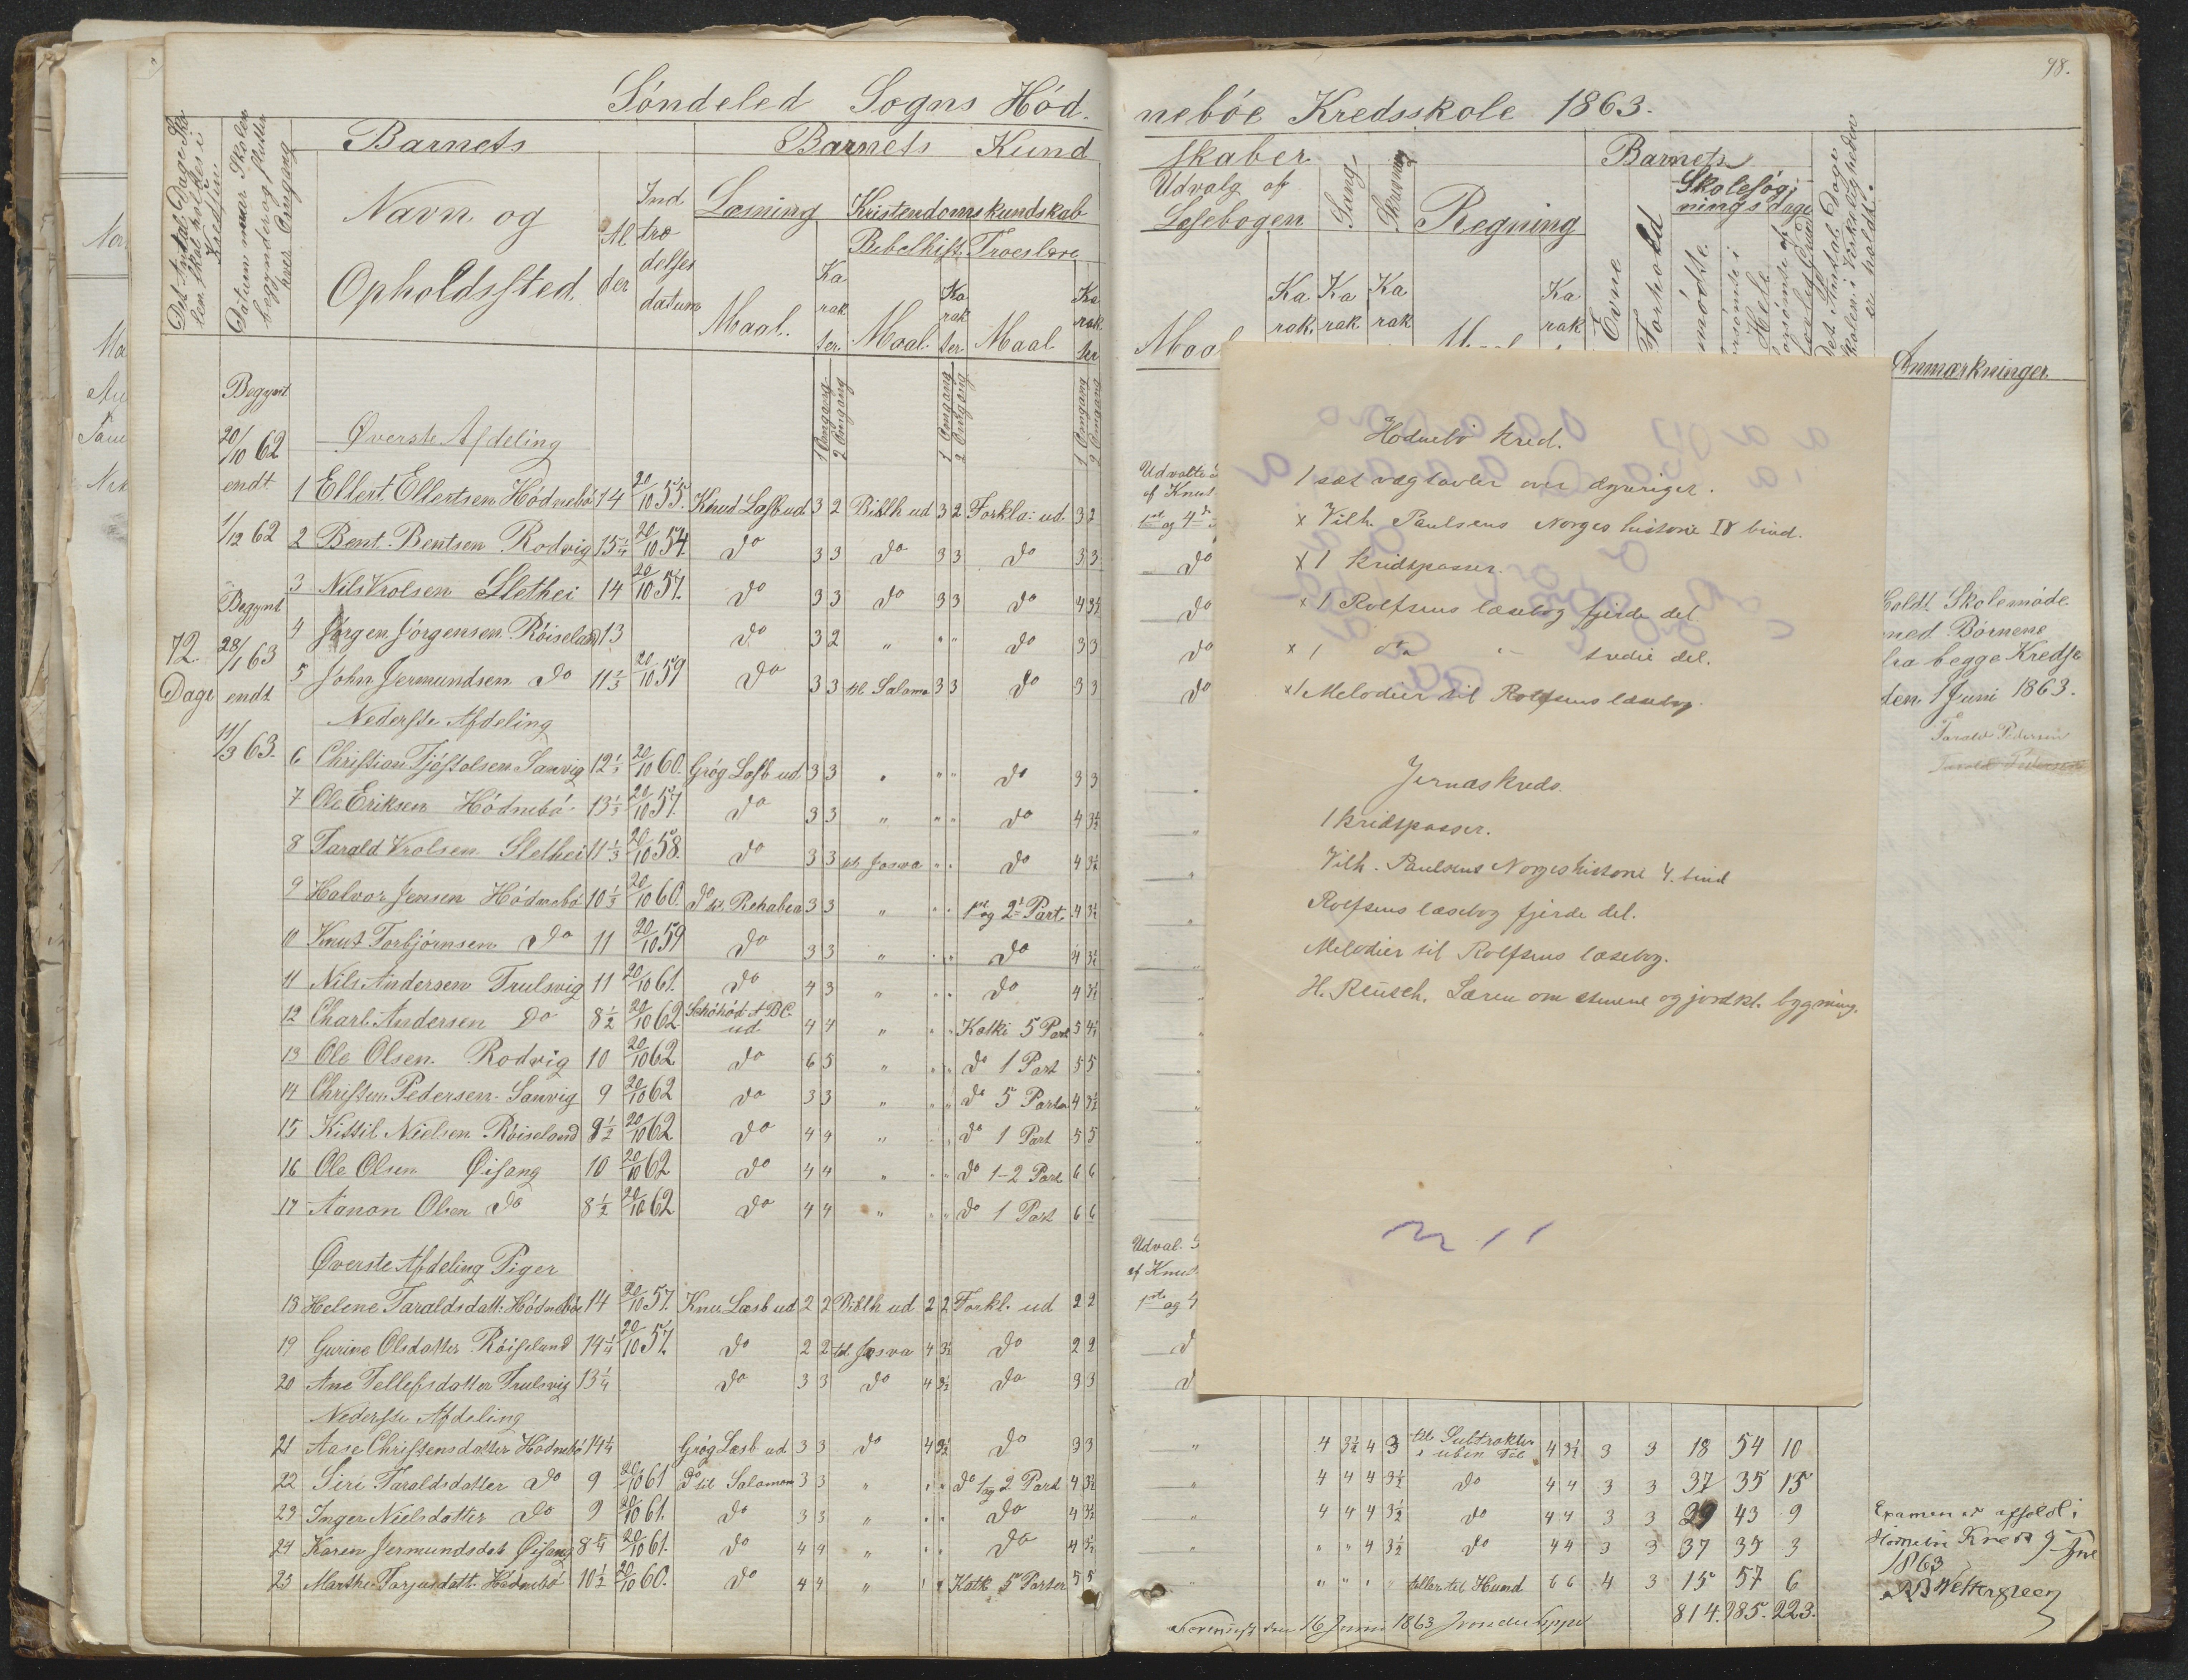 98.
Söndeled Sogns Höd-
neböe Kredsskole 1863.
Det Antal Dage Sko-
len skal holdes i
Kredsen
Datum naar Skolen
begynder og slutter
hver Omgang
Barnets
Navn og
Opholdssted.
Al
der
Ind
træ
delses
datum
Barnets Kund
Læsning
Maal.
Ka
rak
ter.
Kristendomskundskab
Bibelhist.
Maal.
Ka
rak
ter
Troeslære
Maal
Ka
rak
ter
1 Omgang
2 Omgang
1 Omgang
2 Omgang
1 Omgang
2 Omgang
skaber
Udvalg af
Læsebogen
Maal
Ka
rak.
Sang
Ka
rak.
Skrivning
Ka
rak
Regning
Ka
rak
Barnets
Evne
Forhold
Skolesög-
nings dage
mödte.
forsömte i
Hele
forsömte af
lovlig Grund
Det Antal Dage
Skolen i Virkeligheden
er holdt.
Anmærkninger.
Begynt
20/10 62
endt
1/12 62
Begynt
28/1 63
endt
11/3 63.
72
Dage
Øverste Afdeling
1 Ellert Ellertsen Hödnebö 14 20/10 55. Knud Læsb ud 3 2 Biblh ud 3 2 Forkla: ud. 3 2
2 Bent Bentsen Rodvig 15 1/4 20/10 54. do 3 3 do 3 3 do 3 3
3 Nils Vrolsen Slethei 14 20/10 57. do 3 3 do 3 3 do 4 3½
4 Jörgen Jörgensen Röiseland 13 do 3 2 " " " do 3 3
5 John Jermundsen do 11 1/3 20/10 59 do 3 3 til Salamo 3 3 do 3 3
Nederste Afdeling
6 Christian Tjöstolsen Sanvig 12 1/3 20/10 60. Grög Læsb ud 3 3 " " " do 3 3
7 Ole Eriksen Hödnebö 13 1/3 20/10 57. do 3 3 " " " do 4 3½
8 Tarald Vrolsen Slethei 11 1/3 20/10 58. do 3 3 til Josva " " do 4 3½
9 Halvor Jensen Hödnebö 10 1/3 20/10 60. do til Rehabea 3 3 " " " 1ste og 2d Part. 4 3½
10 Knut Torbjörnsen do 11 20/10 59 do 3 3 " " " do 4 3½
11 Nils Andersen Trulsvig 11 20/10 61. do 4 3 " " " do 4 3½
12 Charl. Andersen do 8½ 20/10 62 ABC ud 4 4 " " " Katki 5 Part 5 4½
13 Ole Olsen Rodvig 10 20/10 62 do 6 5 " " " do 1 Part 5 5
14 Christen Pedersen Sanvig 9 20/10 62 do 3 3 " " " do 5 Parter 4 3½
15 Kittil Nielsen Röiseland 8½ 20/10 62 do 4 4 " " " do 1 Part 5 5
16 Ole Olsen Øisang 10 20/10 62 do 4 4 " " " do 1-2 Part 6 6
17 Aanon Olsen do 8½ 20/10 62 do 4 4 " " " do 1 Part 6 6
Øverste Afdeling Piger
18 Helene Taraldsdatt: Hödneböe 14 20/10 57. Knu Læsb ud 2 2 Biblh ud 2 2 Forkl. ud 2 2
19 Gurine Olsdatter Röiseland 14 1/4 20/10 57. do 2 2 til Josva 4 3½ do 2 2
20 Ane Tellefsdatter Trulsvig 13 1/4 do 3 3 do 4 3½ do 3 3
Nederste Afdeling
21 Aase Christensdatter Hödnebö 14 1/4 Grög Læsb ud. 3 3 do 4 3½ do 3 3
22 Siri Taraldsdatter do 9 20/10 61 do til Salamon 3 3 " " " do 1 og 2 Part 4 3½
23 Inger Nielsdatter do 9 20/10 61. do 3 3 " " " do 4 3½
24 Karen Jermundsdat Øisang 8 3/4 20/10 61. do 4 4 " " " do 4 3½
25 Marthe Tarjusdatt. Hödnebö 10½ 20/10 60. do 4 4 " " " Katk 5 Parter 5 5
Udvalte
af Knut
1ste og 4de
do
do
do
do
Udval.
af Knud
1ste og 4
Hodnebö kred.
1 sæt vægtavler over dyreriget.
x Vilh. Paulsens Norges historie IV bind.
x 1 kridtpasser.
x 1 Rolfsens læsebog fjerde del.
x 1 do " tredie del.
x 1 Melodier til Rolfsens læsebog.
Jernæs kreds.
1 kridtpasser.
Vilh. Paulsens Norgeshistorie 4. bind
Rolfsens læsebog fjerde del.
Melodier til Rolfsens læsebog.
H. Reusch. Læren om stenene og jordkl. bygning.
Holdt Skolemöde
med Börnene
fra begge Kredse
den 1 Juni 1863.
Tarald Pedersen
Tarald Pedersen
" 4 3½ 4 3 til Subtraktion i uben Tal 4 3½ 3 3 18 54 10
" 4 4 4 3½ do 4 4 3 3 37 35 15
" 4 4 4 3½ do 4 4 3 3 29 43 9
" " " 4 3½ do 4 4 3 3 37 35 3
" " " " " tæller til Hund 6 6 4 3 15 57 6
814. 985. 223.
Examen er afholdt i
Hödnebö Kreds 9 June
1863
NB Wettergreen
den 16 Juni 1863